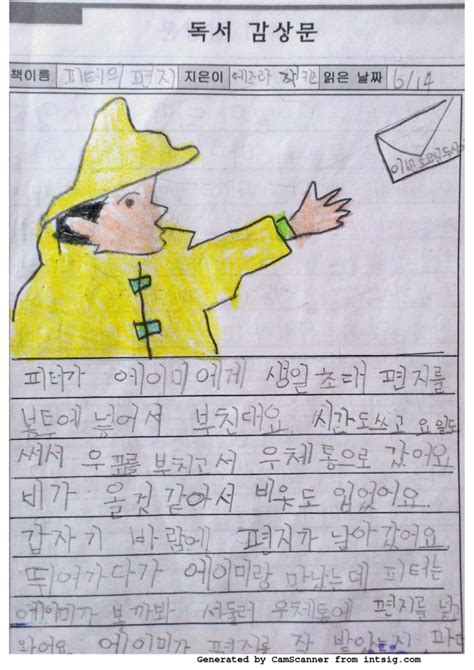 독서 감상문
책이름 피터의 편지 지은이 에즈라 잭 키츠 읽은 날짜 6/14
피터가 에이미에게 생일 초대 편지를
봉투에 넣어서 부친대요. 시간도 쓰고 요일도
써서 우표를 부치고서 우체통으로 갔어요
비가 올것 같아서 비옷도 입었어요.
갑자기 바람에 편지가 날아갔어요.
뛰어가다가 에이미랑 만나는데 피터는
에이미가 볼까봐 서둘러 우체통에 편지를 넣고
와어요 에이미가 편지를 잘 받아는지
Generated by CamScanner from intsig.com